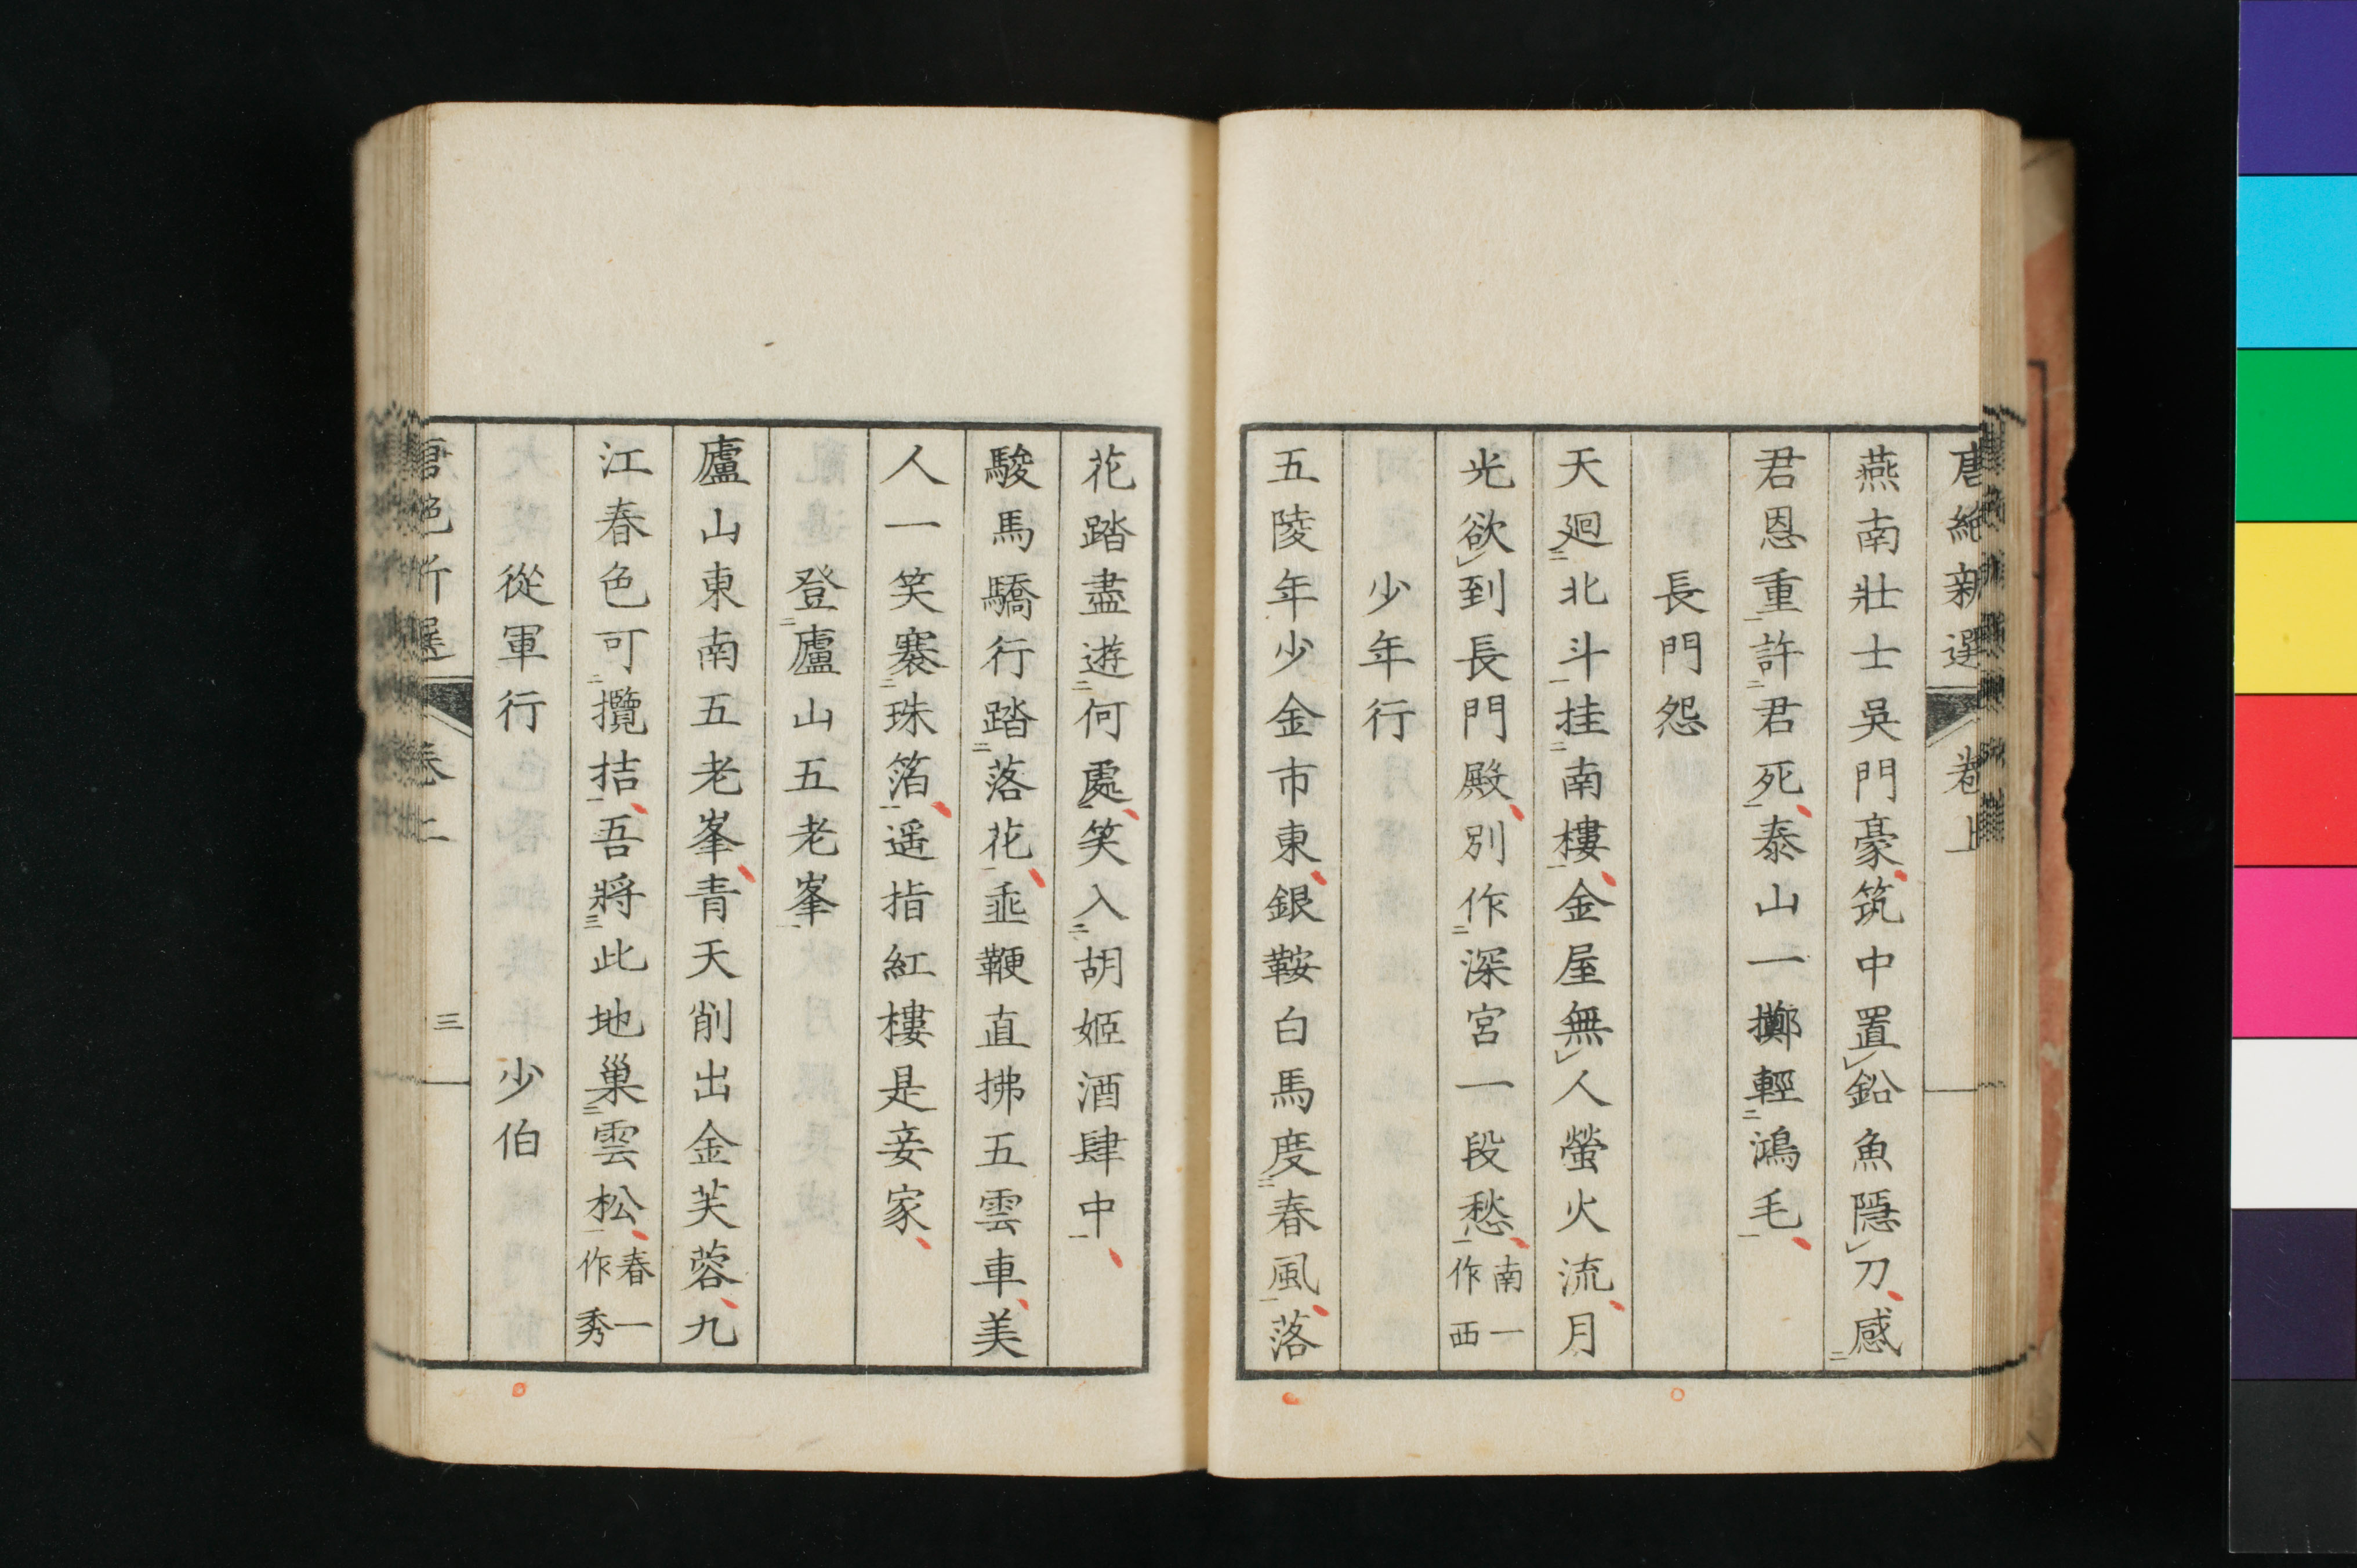 唐絶新選 卷上
燕南壯士吳門豪筑中置鉛魚隱刀感
君恩重許君死泰山一擲輕鴻毛
長門怨
天廻北斗挂南樓金屋無人螢火流月
光欲到長門殿別作深宮一段愁南一作西
少年行
五陵年少金市東銀鞍白馬度春風落
花踏盡遊何處笑入胡姬酒肆中
駿馬驕行踏落花垂鞭直拂五雲車美
人一笑褰珠箔遥指紅樓是妾家
登廬山五老峯
廬山東南五老峯青天削出金芙蓉九
江春色可攬拮吾將此地巢雲松春一作秀
從軍行 少伯
唐絶新選 卷上 三